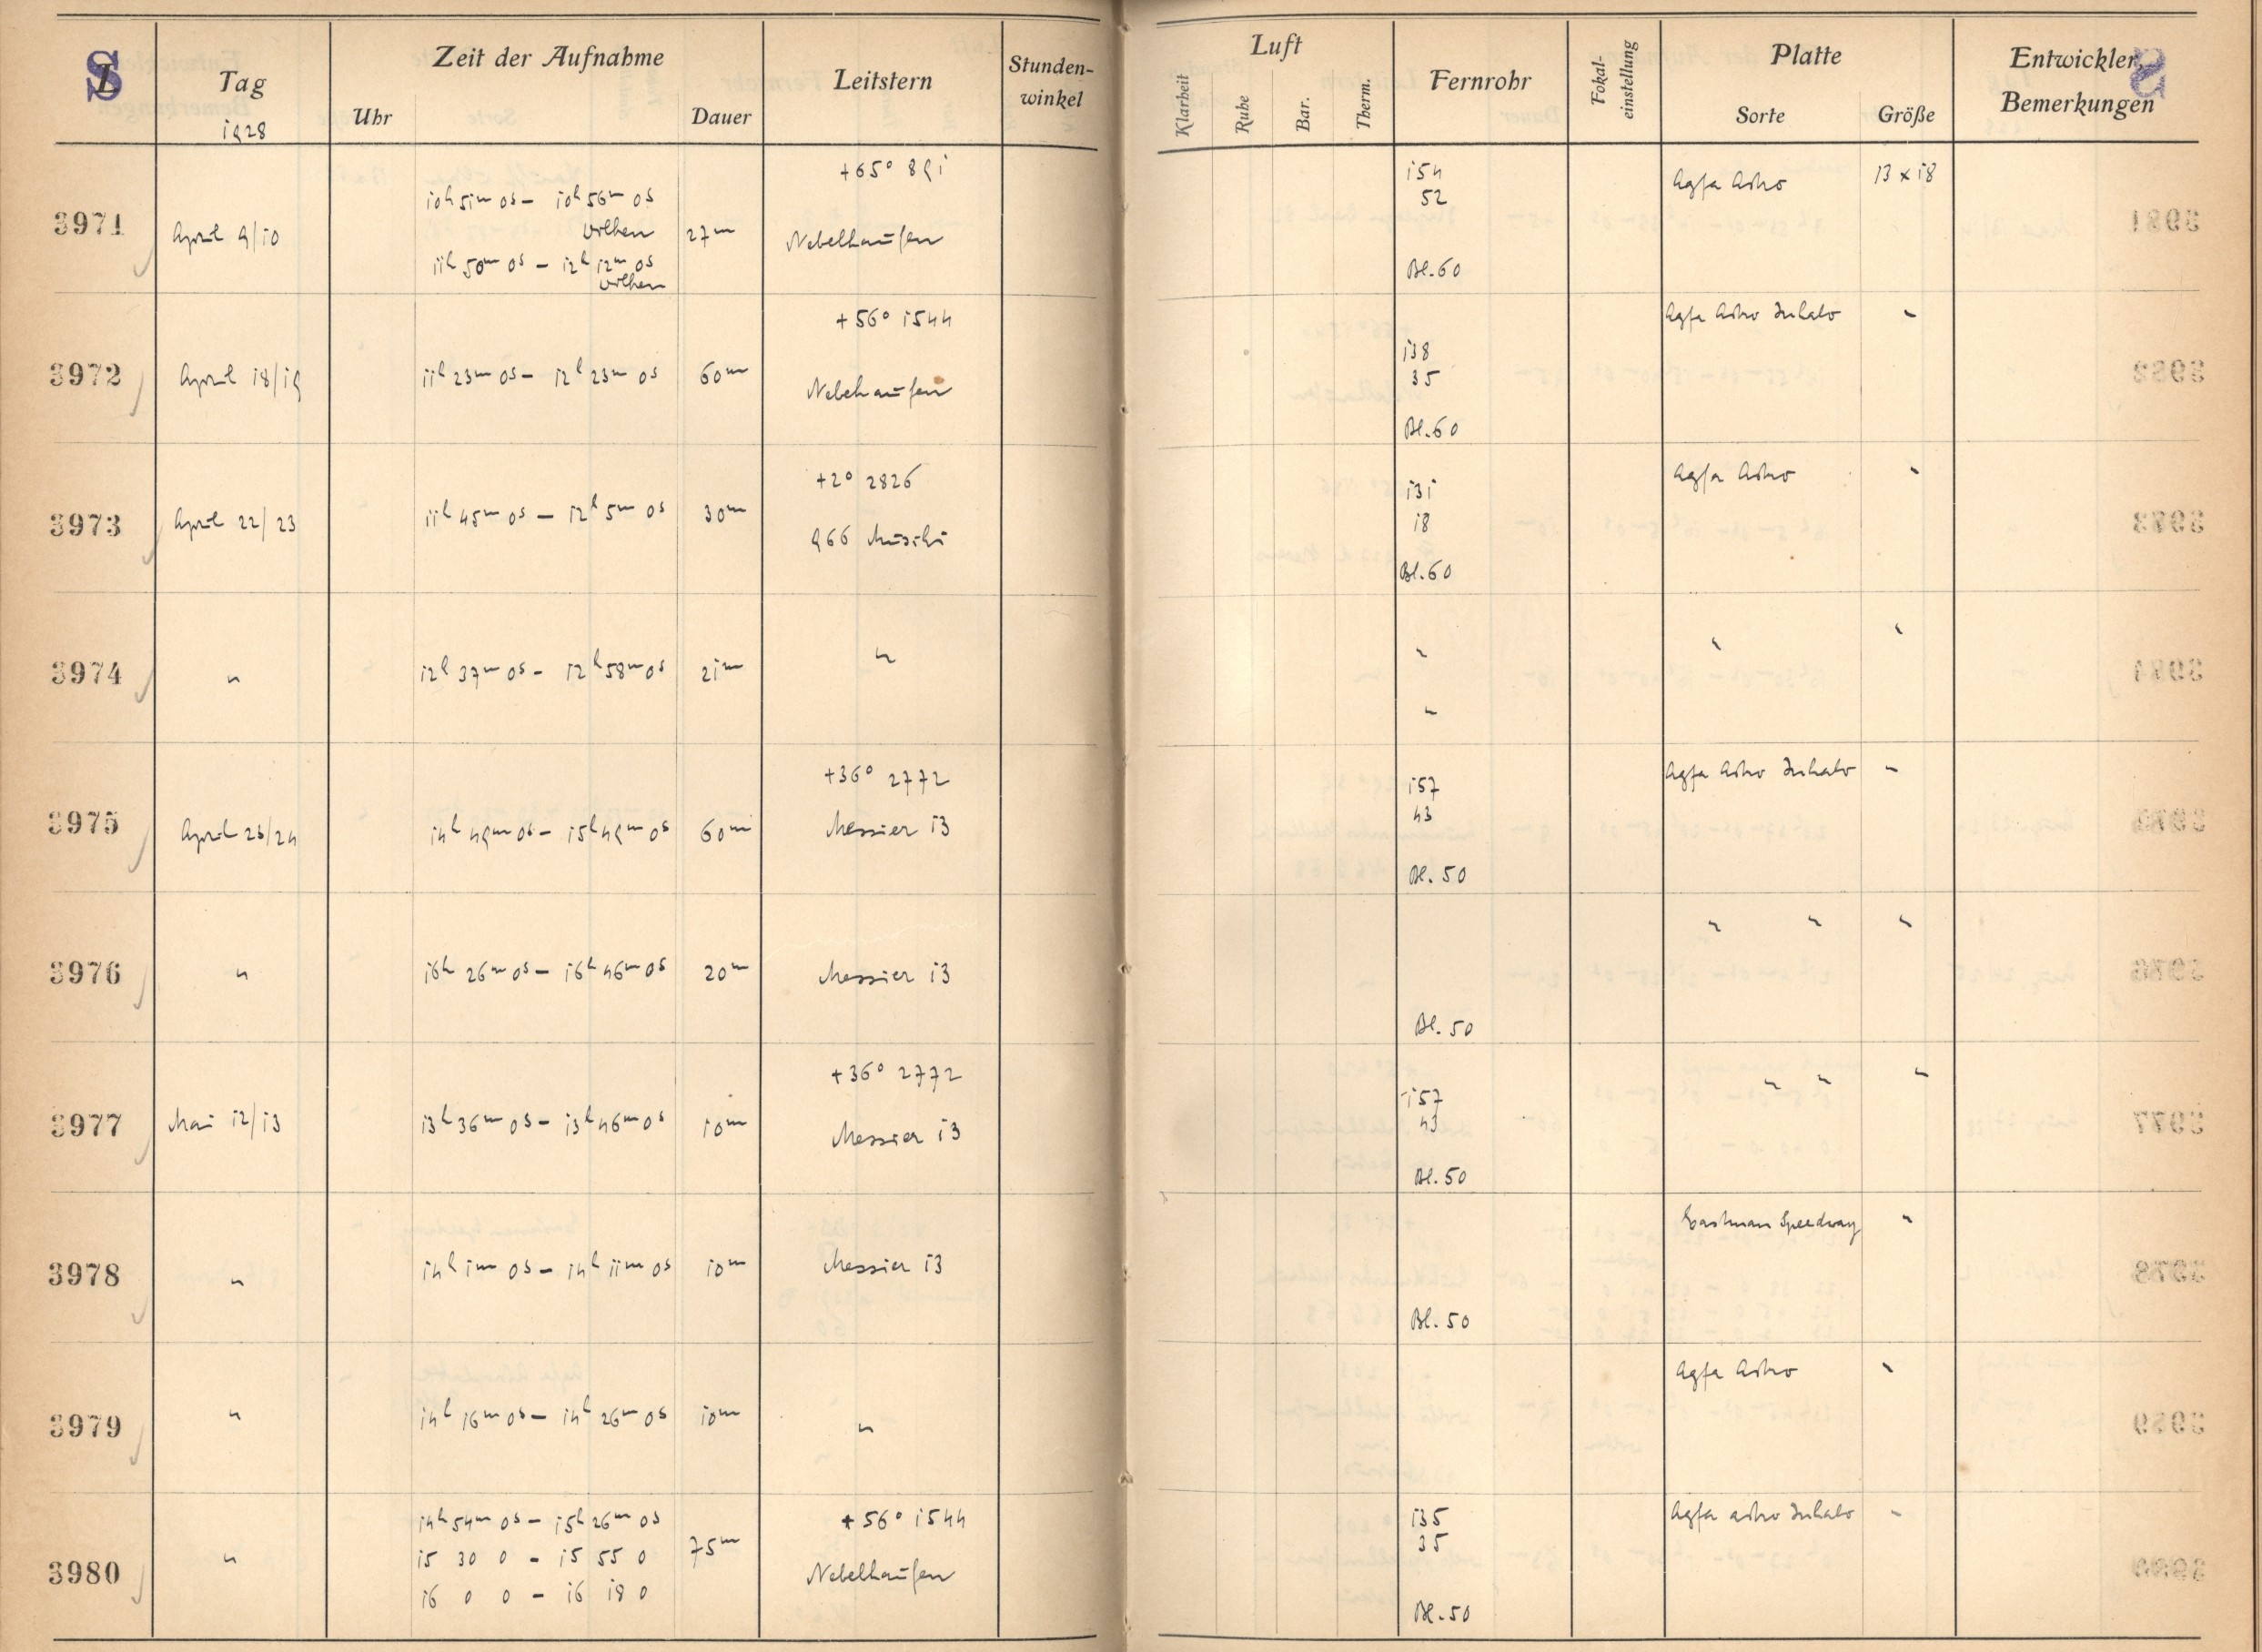 S
L Tag Zeit der Aufnahme Leitstern Stunden-winkel Luft Fernrohr Fokal-einstellung Platte Entwickler, Bemerkungen
1928 Uhr Dauer Klarheit Ruhe Bar. Therm. Sorte Größe
+65° 891 154 Agfa Astro 13 x 18
10h 51m 0s – 10h 56m 0s 52
3971 April 9/10 Wolken 27m Nebelhaufen
11h 50m 0s – 12h 12m 0s Bl. 60
Wolken
+56° 1544 Agfa Astro Inhalo "
138
3972 April 18/19 11h 23m 0s – 12h 23m 0s 60m Nebelhaufen 35
Bl. 60
+2° 2826 Agfa Astro "
131
3973 April 22/23 11h 45m 0s – 12h 5m 0s 30m 966 Muschi 18
Bl. 60
" " " "
3974 " 12h 37m 0s – 12h 58m 0s 21m
"
+36° 2772 157 Agfa Astro Inhalo "
43
3975 April 23/24 14h 49m 0s – 15h 49m 0s 60m Messier 13
Bl. 50
" " "
3976 " 16h 26m 0s – 16h 46m 0s 20m Messier 13
Bl. 50
+36° 2772 157 " " "
43
3977 Mai 12/13 13h 36m 0s – 13h 46m 0s 10m Messier 13
Bl. 50
Eastman Speedway "
3978 " 14h 1m 0s – 14h 11m 0s 10m Messier 13
Bl. 50
Agfa Astro "
3979 " 14h 16m 0s – 14h 26m 0s 10m "
14h 54m 0s – 15h 26m 0s +56° 1544 135 Agfa Astro Inhalo "
35
3980 " 15 30 0 – 15 55 0 75m Nebelhaufen
16 0 0 – 16 18 0 Bl. 50